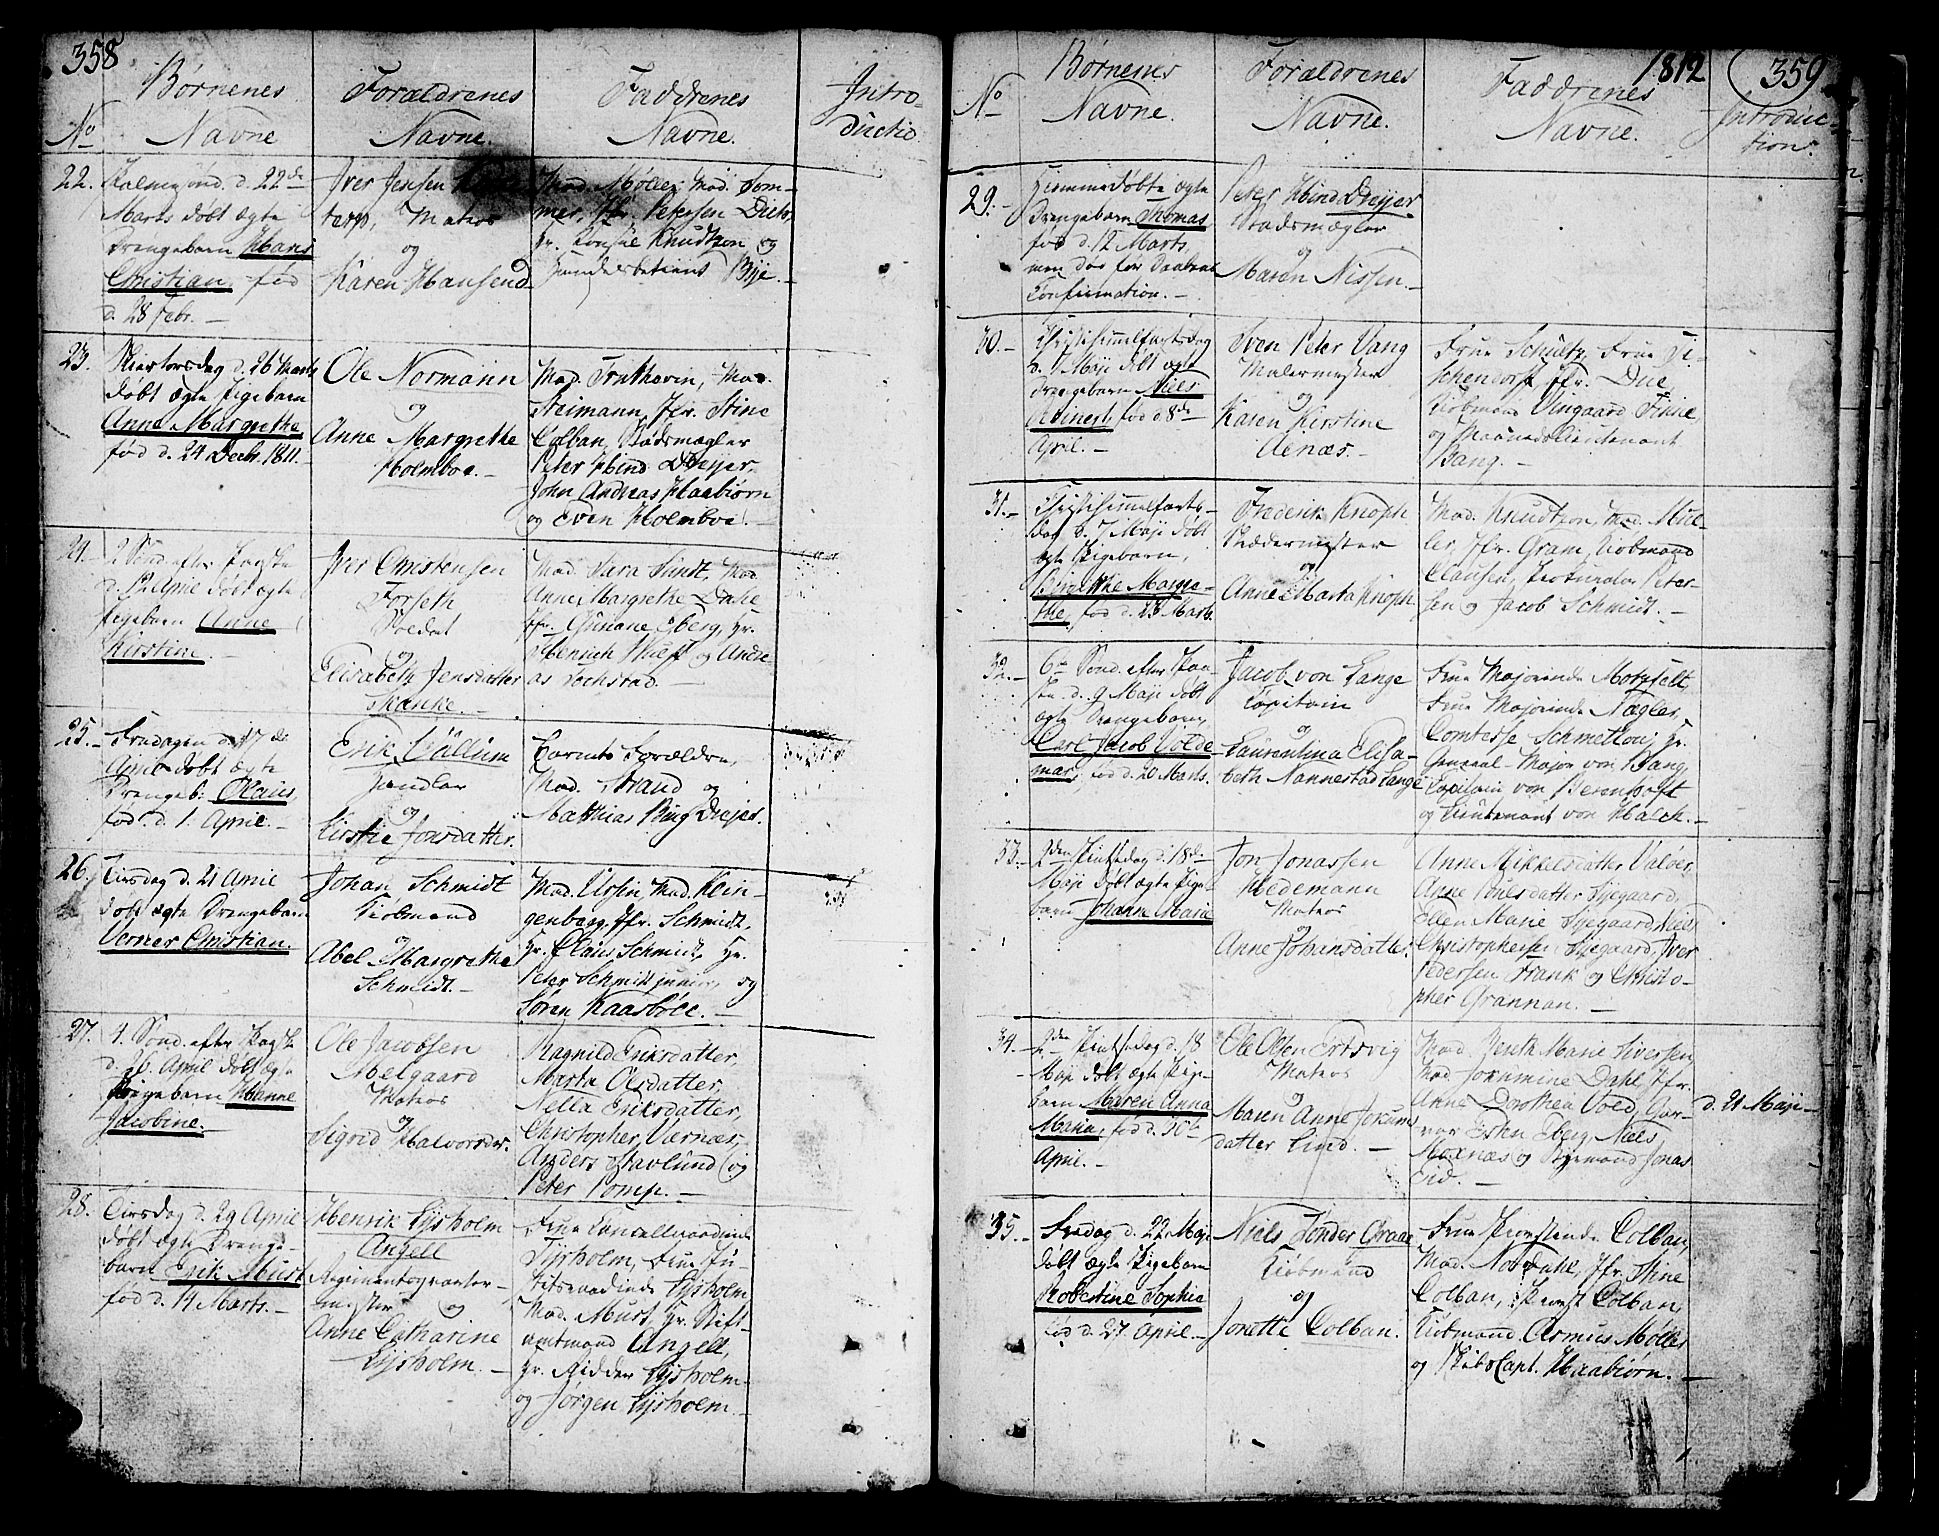 358
No
Børnenes
Navne
Forældrenes
Navne.
Faddrenes
Navne.
Intro-
ductio
22.
Palmesønd. d. 22de
Marts døbt ægte
Drengebarn Hans
Christian, fød
d. 28 Febr. –
Iver Jensen
terp, Matros
og
Karen Hansend
Mad. Møller, Mad. Som-
mer, Jfr. Petersen Diets,
Hr. Knudtzon og
Bye. –
23.
Skiertorsdag d. 26 Marts
døbt ægte Pigebarn
Anne Margrethe
fød d. 24 Decbr. 1811. –
Ole Normann
og
Anne Margrethe
Holmboe. –
Mad. Truthorn, Mad.
Steimann, Jfr. Stine
Colban, Stadsmægler
Peter Hind Dreyer,
John Andreas Haabiørn
og Even Holmboe. –
24. –
2 Sønd. efter Paaske
d. 12 April døbt ægte
Pigebarn Anne
Kirstine. –
Iver Christensen
Forseth
Soldat
og
Elisabeth Jensdatter
Skanke. –
Mad. Sara Lundt, Mad.
Anne Margrethe Dahl
Jfr. Gunane Eberg, Hr.
Henrich og Andre-
as Sochstad. –
25. –
Fredagen d. 17de
April døbt ægte
Drengeb: Olaus,
fød d. 1. April. –
Erik
Handler
og
Kirstie Jonsdatter.
Barnets Forældre,
Mad. Strand og
Matthias Bing Dreyer.
26.
Tirsdag d. 21 April
døbt ægte Drengebarn
Verner Christian.
Johan Schmidt
Kiøbmand
og
Abel Margrethe
Schmidt. –
Mad. Ursin, Mad. Klin-
genberg, Jfr. Schmidt,
Hr. Claus Schmidt, Hr.
Peter Schmidt junior, og
Søren Kaasbøll. –
27.
4. Sønd. efter Paaske
d. 26. April døbt ægte
Pigebarn Hanne
Jacobine. –
Ole Jacobsen
Melgaard
Matros
og
Sigrid Halvorsdr.
Ragnild Eriksdatter,
Marta Olsdatter,
Nella Eriksdatter,
Christopher Værnæs,
Anders Stavlund og
Peter Pomp. –
28.
Tirsdag d. 29 April
døbt ægte Drenge-
barn Erik Must
fød d. 14 Marts. –
Henrik Lysholm
Angell
Regimentsqvarteer-
mester og
Anne Catharine
Lysholm. –
Frue Cancelleraadinde
Lysholm, Frue Ju-
stitsraadinde Lysholm,
Mad. Must, Hr. Stift-
amtmand Angell,
Hr. Ridder Lysholm
og Jørgen Lysholm. –
1812
359
No
Børnenes
Navne.
Forældrenes
Navne.
Faddrenes
Navne.
Introduc-
tion.
29. –
Hiemmedøbte ægte
Drengebarn Thomas,
fød d. 12 Marts,
men døe før Daabens
Confirmation. –
Peter Hind Dreyer
Stadsmægler
og
Maren Nissen. –
30. –
Christi Himmelfartsdag
d. 7 Maji døbt ægte
Drengebarn Niels
fød d. 8de
April. –
Sven Peter Vang
Malermester
og
Karen Kirstine
Aenæs. –
Frue Schultz, Frue Ti-
schendorf, Jfr. Due,
Kiøbmand Vingaard Finne,
og Premierlieutenant
Bang. –
31. –
Christi Himmelfarts-
dag d. 7 Maji døbt
ægte Pigebarn,
Birgitthe Margre-
the, fød d. 23 Marts.
Frederik Knoph
Skræddermester
og
Anne Marta Knoph
Mad. Knudtzon, Mad. Mül-
ler, Jfr. Gram, Kiøbmand
Clausen, Procurator Peter-
sen og Jacob Schmidt. –
32. –
6te Sønd. efter Paa-
ske d. 9 Maji døbt
ægte Drengebarn,
Carl Jacob Volde-
mar, fød d. 20 Marts.
Jacob von Lange
Capitain
og
Laurentina Elisa-
beth Nannestad Lange
Frue Majorinde Motzfelt,
Frue Majorinde Nægler,
Comtesse Schmettou, Hr.
General-Major von Bang,
Capitain von Berenhoft
og Lieutenant von Halck. –
33. –
2den Pintsedag d. 18de
Maji døbt ægte Pige-
barn Johanne Marie
Jon Jonassen
Hedemann
Matros
og
Anne Johansdatter.
Anne Mikkelsdatter Valøer,
Anne Poulsdatter Syegaard,
Ellen Marie Syegaard, Niels
Christophersen Syegaard, Iver
Pedersen Frank og Christo-
pher Grannan. –
34. –
2den Pintsedag d. 18
Maji døbt ægte Pige-
barn Maren Anna
Maria, fød d. 30te
April. –
Ole Olsen Ertsvig
Matros
og
Maren Anne Jokums
datter Lind. –
Mad. Marie Siversen,
Mad. Jokumine Dahl, Jfr.
Anne Dorothea Vold, Gar-
ver Esten Eberg, Niels
Moxnæs og Styrmand Jonas
Eid. –
d. 21 Maji –
35. –
Fredag d. 22 Maji
døbt ægte Pigebarn
Robertine Sophia
fød d. 27 April. –
Niels Tønder Graae
Kiøbmand
og
Jonette Colban.
Frue Provstinde Colban,
Mad. Nordahl, Jfr. Stine
Colban, Provst Colban,
Kiøbmand Asmus Møller
og Skibs Capt. Haabiørn. –